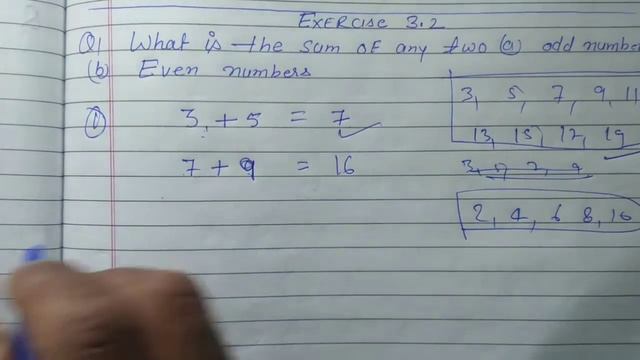 EXERCISE 3.2
Q1 What is the sum of any two (a) odd number
(b) Even numbers
① 3 + 5 = 7
7 + 9 = 16
3, 5, 7, 9, 11
13, 15, 17, 19
3, 5, 7, 9
2, 4, 6 8, 10